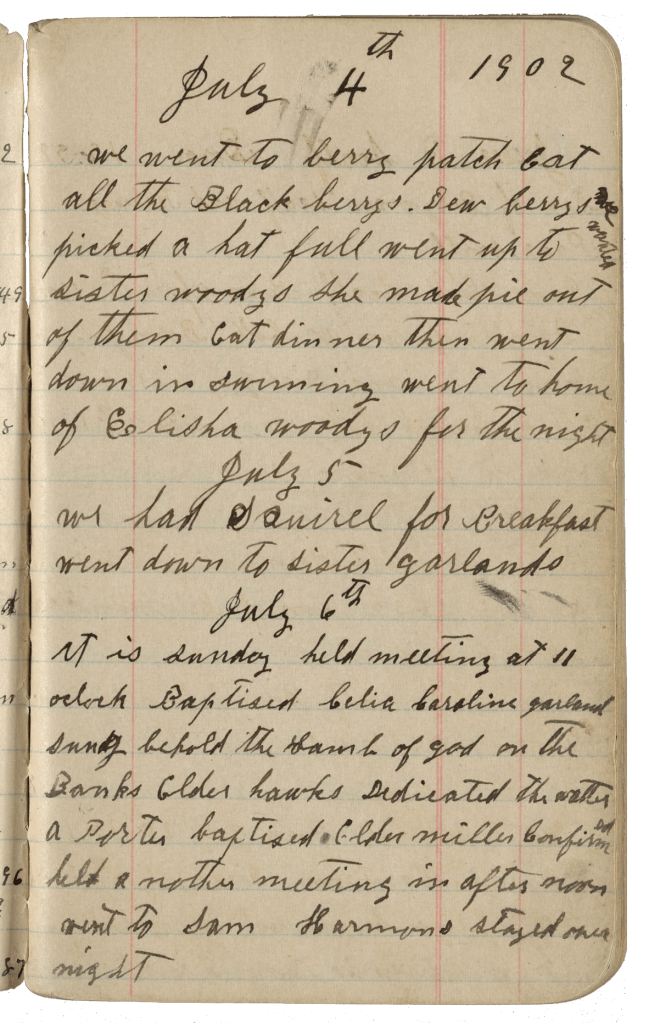 July 4th 1902
we went to berry patch Eat
all the Black berrys. Dew berrys we wanted
picked a hat full went up to
sister woodys she made pie out
of them Eat dinner then went
down in swiming went to home
of Elisha woodys for the night
July 5
we had Squirel for Breakfast
went down to sister garlands
July 6th
it is sunday held meeting at 11
oclock Baptised Celia Caroline garland
sung behold the Lamb of god on the
Banks Elder hawks Dedicated the watter
a Porter baptised Elder miller Confirmed
held a nother meeting in after noon
went to Sam Harmons stayed over
night
2
49
5
8
96
87